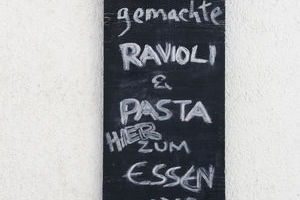 gemachte
RAVIOLI
&
PASTA
HIER ZUM
ESSEN